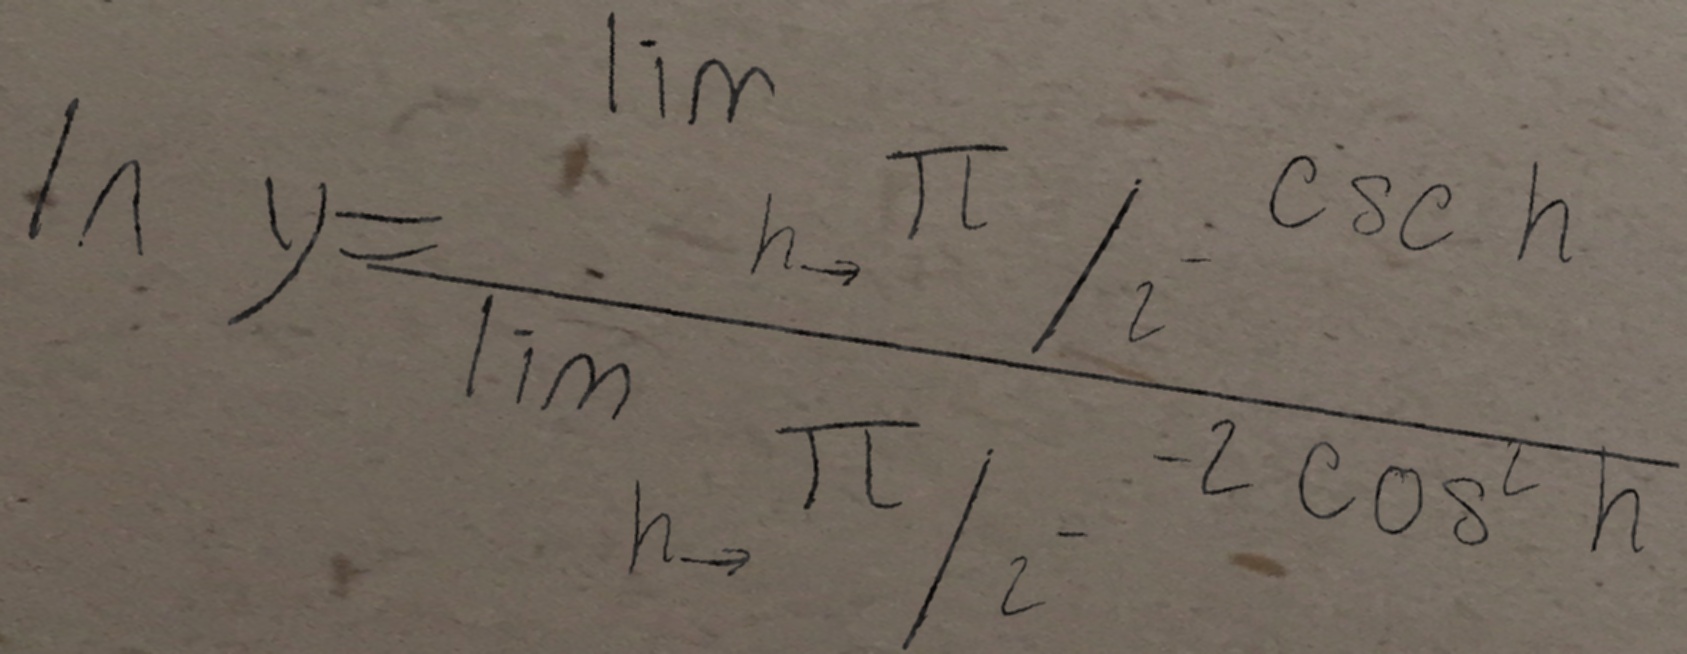 \ln y = \frac{\lim_{h \to \pi/2^-} \csc h}{\lim_{h \to \pi/2^-} -2 \cos^2 h}